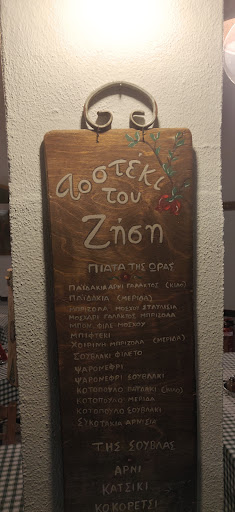 Το στέκι
του
Ζήση
ΠΙΑΤΑ ΤΗΣ ΩΡΑΣ
ΠΑΪΔΑΚΙΑ ΑΡΝΙ ΓΑΛΑΚΤΟΣ (ΚΙΛΟ)
ΠΑΪΔΑΚΙΑ (ΜΕΡΙΔΑ)
ΜΠΡΙΖΟΛΑ ΜΟΣΧΟΥ ΣΠΑΛΟΜΠΡΙΖΟΛΑ
ΜΟΣΧΑΡΙ ΓΑΛΑΚΤΟΣ ΜΠΡΙΖΟΛΑ
ΜΠΟΝ ΦΙΛΕ ΜΟΣΧΟΥ
ΜΠΙΦΤΕΚΙ
ΧΟΙΡΙΝΗ ΜΠΡΙΖΟΛΑ (ΜΕΡΙΔΑ)
ΣΟΥΒΛΑΚΙ ΦΙΛΕΤΟ
ΨΑΡΟΝΕΦΡΙ
ΨΑΡΟΝΕΦΡΙ ΣΟΥΒΛΑΚΙ
ΚΟΤΟΠΟΥΛΟ ΠΑΪΔΑΚΙ (ΚΙΛΟ)
ΚΟΤΟΠΟΥΛΟ ΜΕΡΙΔΑ
ΚΟΤΟΠΟΥΛΟ ΣΟΥΒΛΑΚΙ
ΣΥΚΩΤΑΚΙΑ ΑΡΝΙΣΙΑ
ΤΗΣ ΣΟΥΒΛΑΣ
ΑΡΝΙ
ΚΑΤΣΙΚΙ
ΚΟΚΟΡΕΤΣΙ